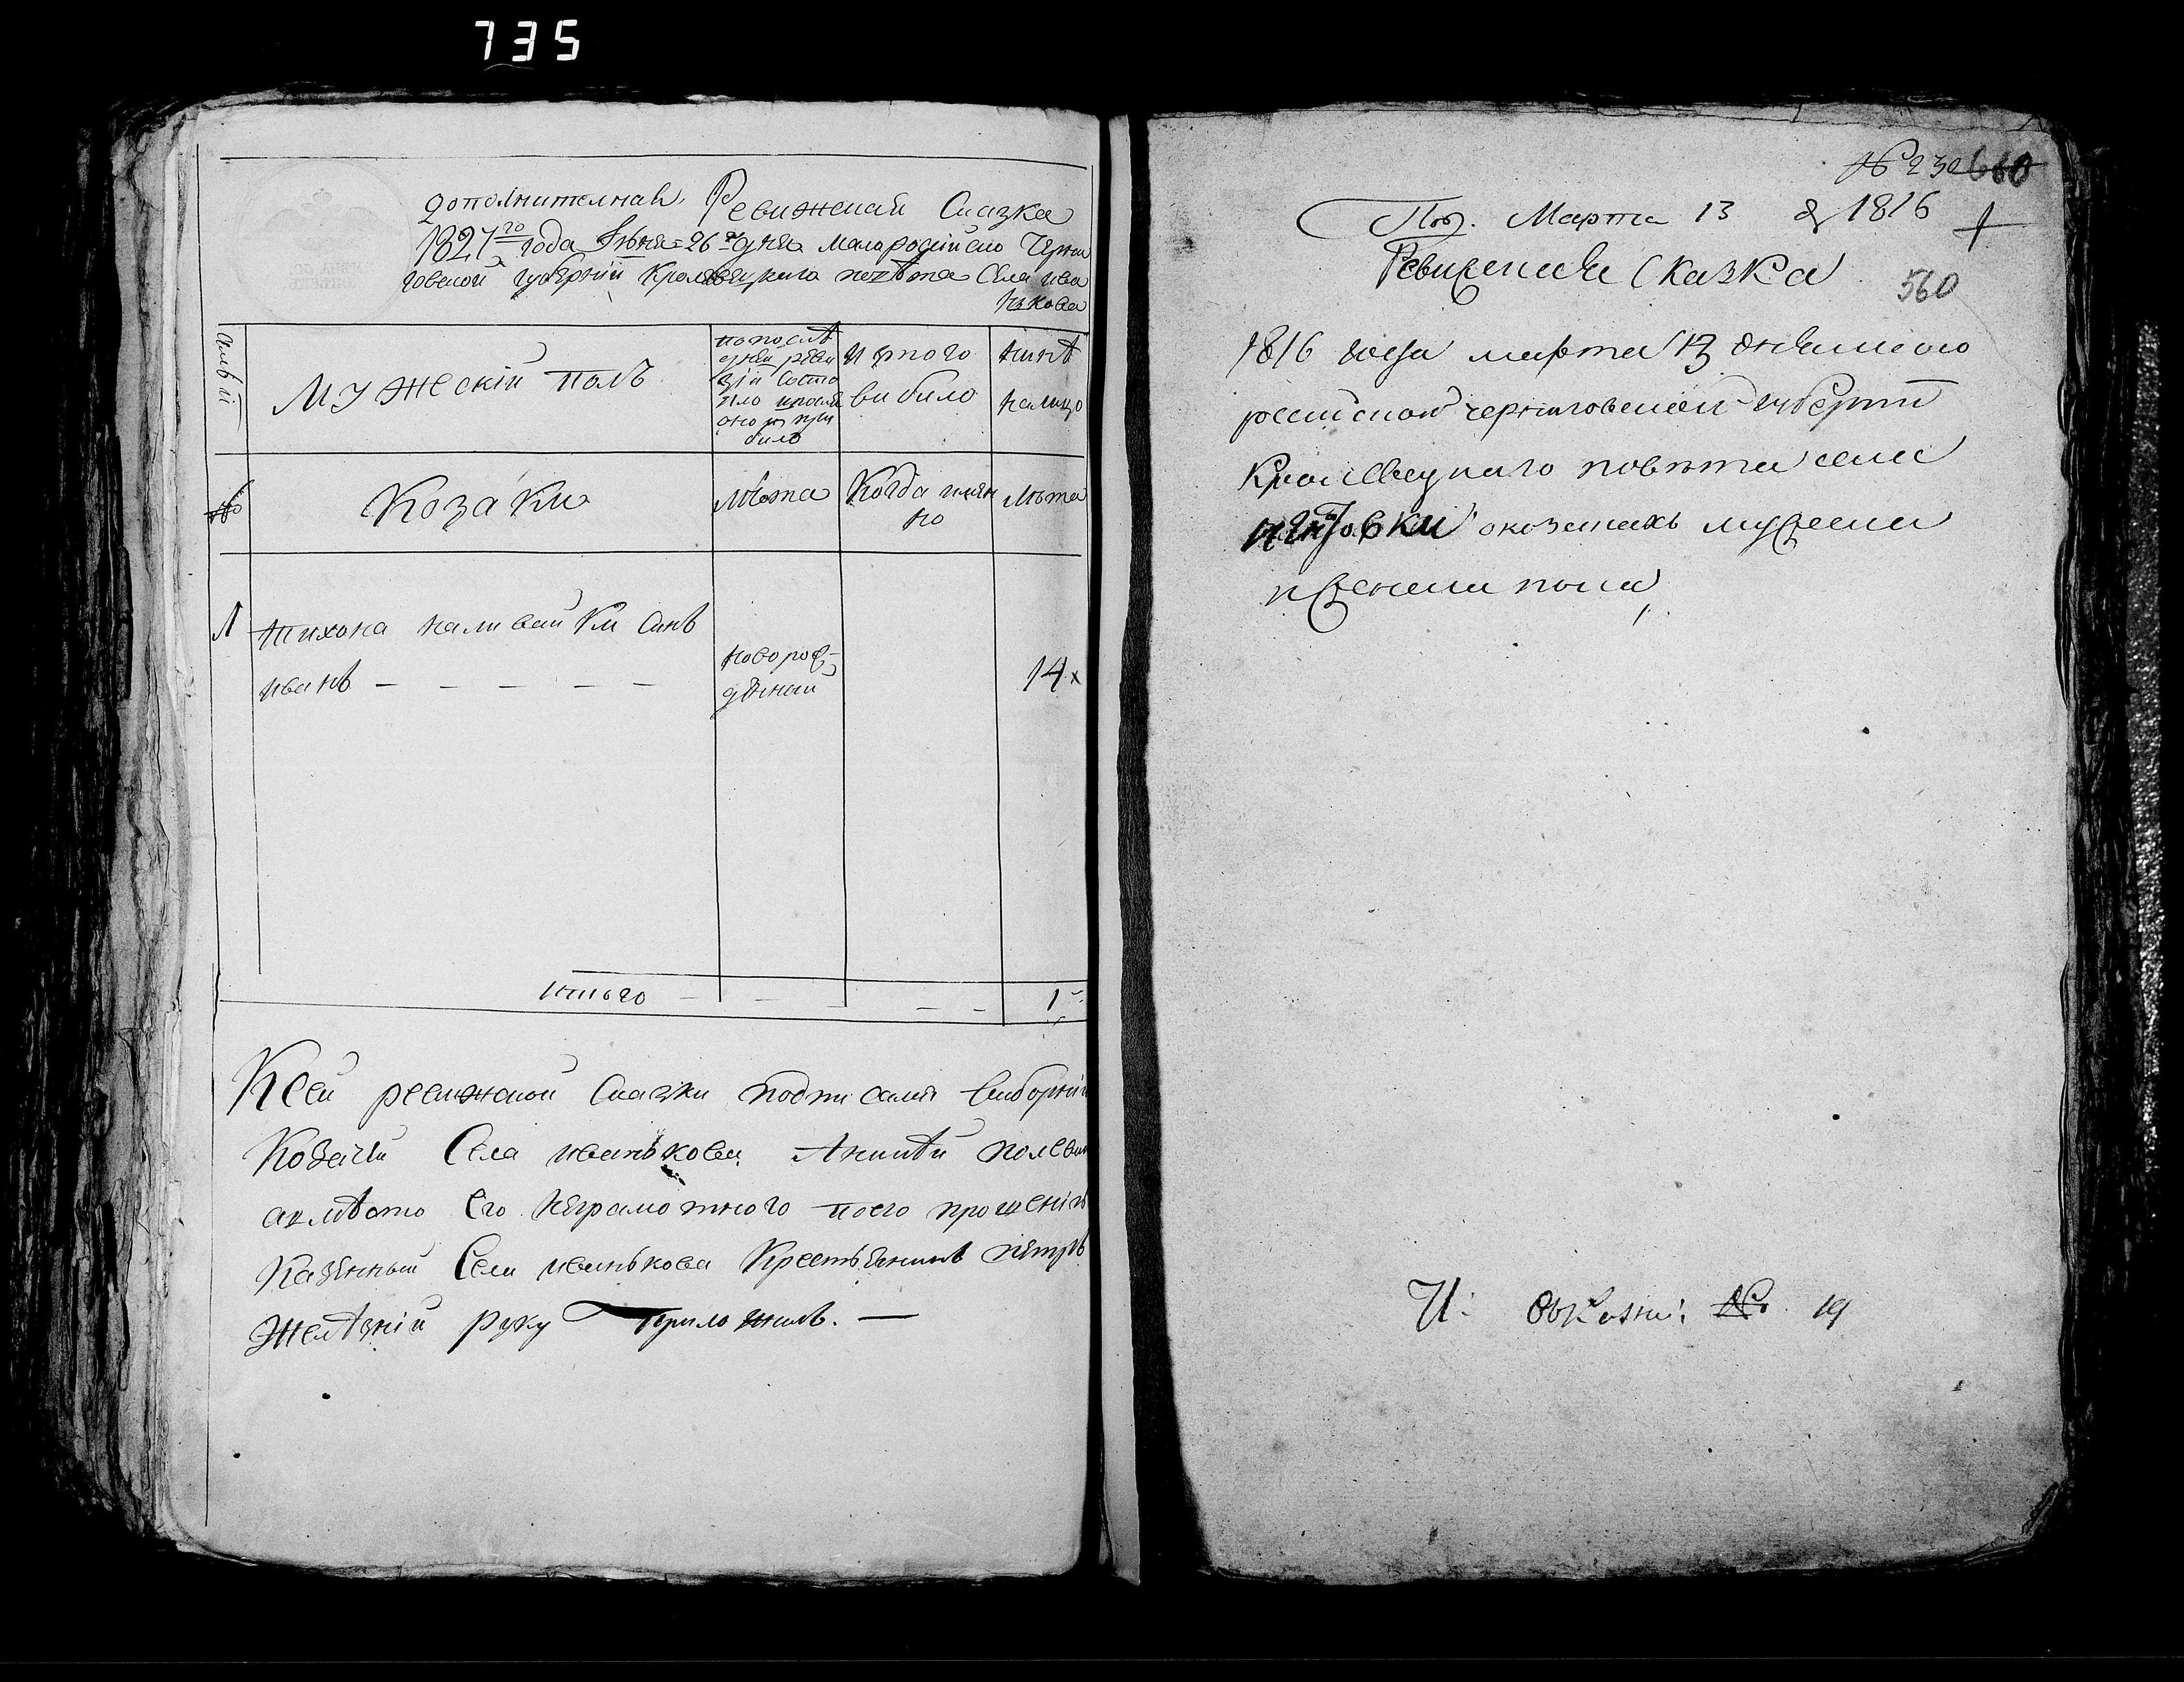 735
дополнителная Ревижская Сказка
1827го года Іюня 26го дня малоросійско Черни
говской губерніи Кролевецкаго повѣта Села ива
нкова
Мужескій полъ
по послѣ
дней реви
зіи состо
яло и после
оно и при
было
Изтого
вибило
нинѣ
налицо
№
Козаки
Лѣта
Когда имян
но
Лѣта
1
Тихона наливайки синъ
иванъ — — — — —
Новорож-
деный
14
Итого — — — — 1
К сей ревижской сказки подписался виборній
Козачій Села иванькова
а вмѣсто Его Неграмотного по его прошенію
Казенный Села иванькова Крестьянинъ петръ
Желѣзній руку приложилъ. —
№ 230 660
Пол. Марта 13 д 1816
Ревижская Сказка
560
1816 года марта 13 дня мало
российской черниговской губерніи
Кролевецкаго повѣта села
о козакахъ мужеска
и женска пола
И: № 19